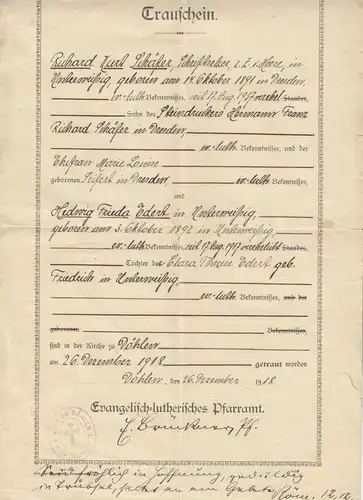 Trauschein.
Richard Kurt Schäfer, Schriftsetzer, z. Z. i. Heere, in
Unterweißig, geboren am 14. Oktober 1891 in Dresden,
ev.-luth. Bekenntnisses, seit 17. Aug. 1917 verehel. Standes,
Sohn des Steindruckers Hermann Franz
Richard Schäfer in Dresden,
ev.-luth. Bekenntnisses, und der
Ehefrau Marie Louise
geborenen Seifert in Dresden, ev.-luth. Bekenntnisses,
und
Hedwig Frieda Edert in Unterweißig,
geboren am 3. Oktober 1892 in Unterweißig,
ev.-luth. Bekenntnisses, seit 17. Aug. 1917 verehelicht Standes,
Tochter der Clara Therese Edert geb.
Friedrich in Unterweißig,
ev.-luth. Bekenntnisses, und der
geborenen Bekenntnisses,
sind in der Kirche zu Döhlen
am 26. Dezember 1918 getraut worden
Döhlen, den 26. Dezember 1918.
Evangelisch-lutherisches Pfarramt.
Pf.
Seid fröhlich in Hoffnung, geduldig
in Trübsal, haltet an am Gebet. Röm. 12, 12.